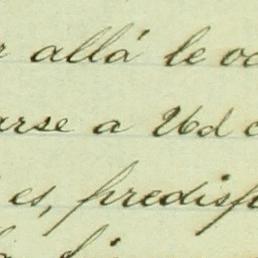 r allá le oc
arse a Ud c
es, predisp